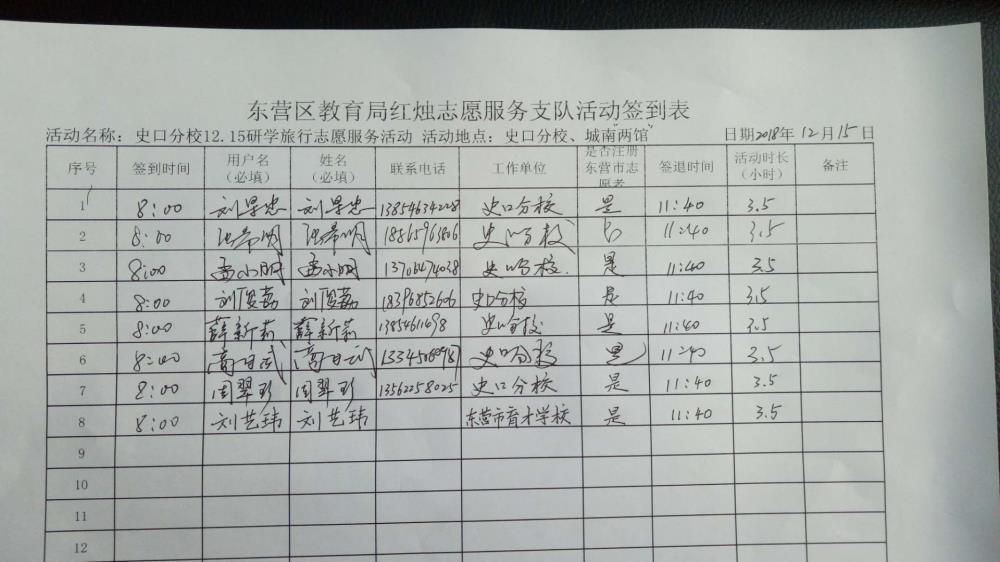 东营区教育局红烛志愿服务支队活动签到表
活动名称：史口分校12.15研学旅行志愿服务活动 活动地点：史口分校、城南"两馆" 日期2018年12月15日
序号 签到时间 用户名（必填） 姓名（必填） 联系电话 工作单位 是否注册东营市志愿者 签退时间 活动时长（小时） 备注
1 8:00 刘景忠 刘景忠 13854634228 史口分校 是 11:40 3.5
2 8:00 18865963806 史口分校 11:40 3.5
3 8:00 孟小明 孟小明 13706474038 史口分校. 是 11:40 3.5
4 8:00 刘俊荔 刘俊荔 18396852606 史口分校 是 11:40 3.5
5 8:00 薛新莉 薛新莉 史口分校 是 11:40 3.5
6 8:00 史口分校 是 11:40 3.5
7 8:00 周翠珍 周翠珍 13562258025 史口分校 是 11:40 3.5
8 8:00 刘艺玮 刘艺玮 东营市育才学校 是 11:40 3.5
9
10
11
12